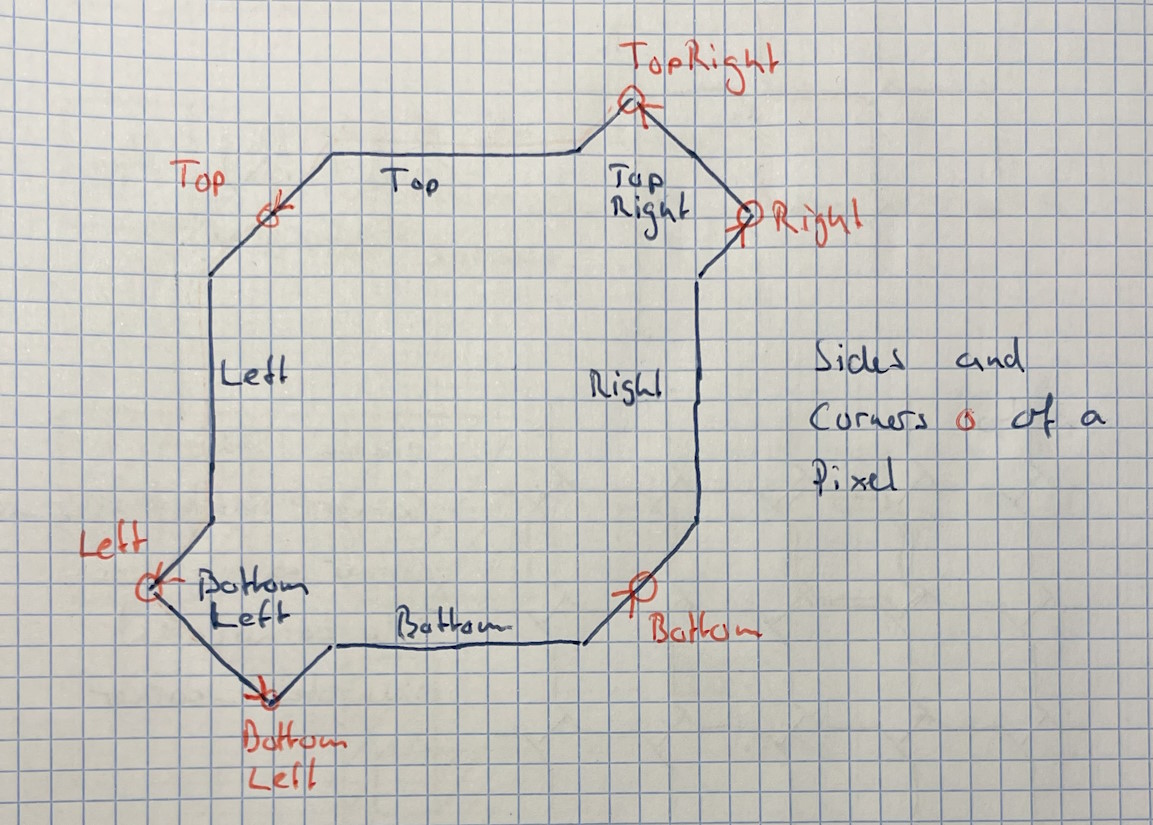 TopRight
Top
Top
Top
Right
Right
Left
Right
Sides and
Corners o of a
Pixel
Left
Bottom
Left
Bottom
Bottom
Bottom
Left